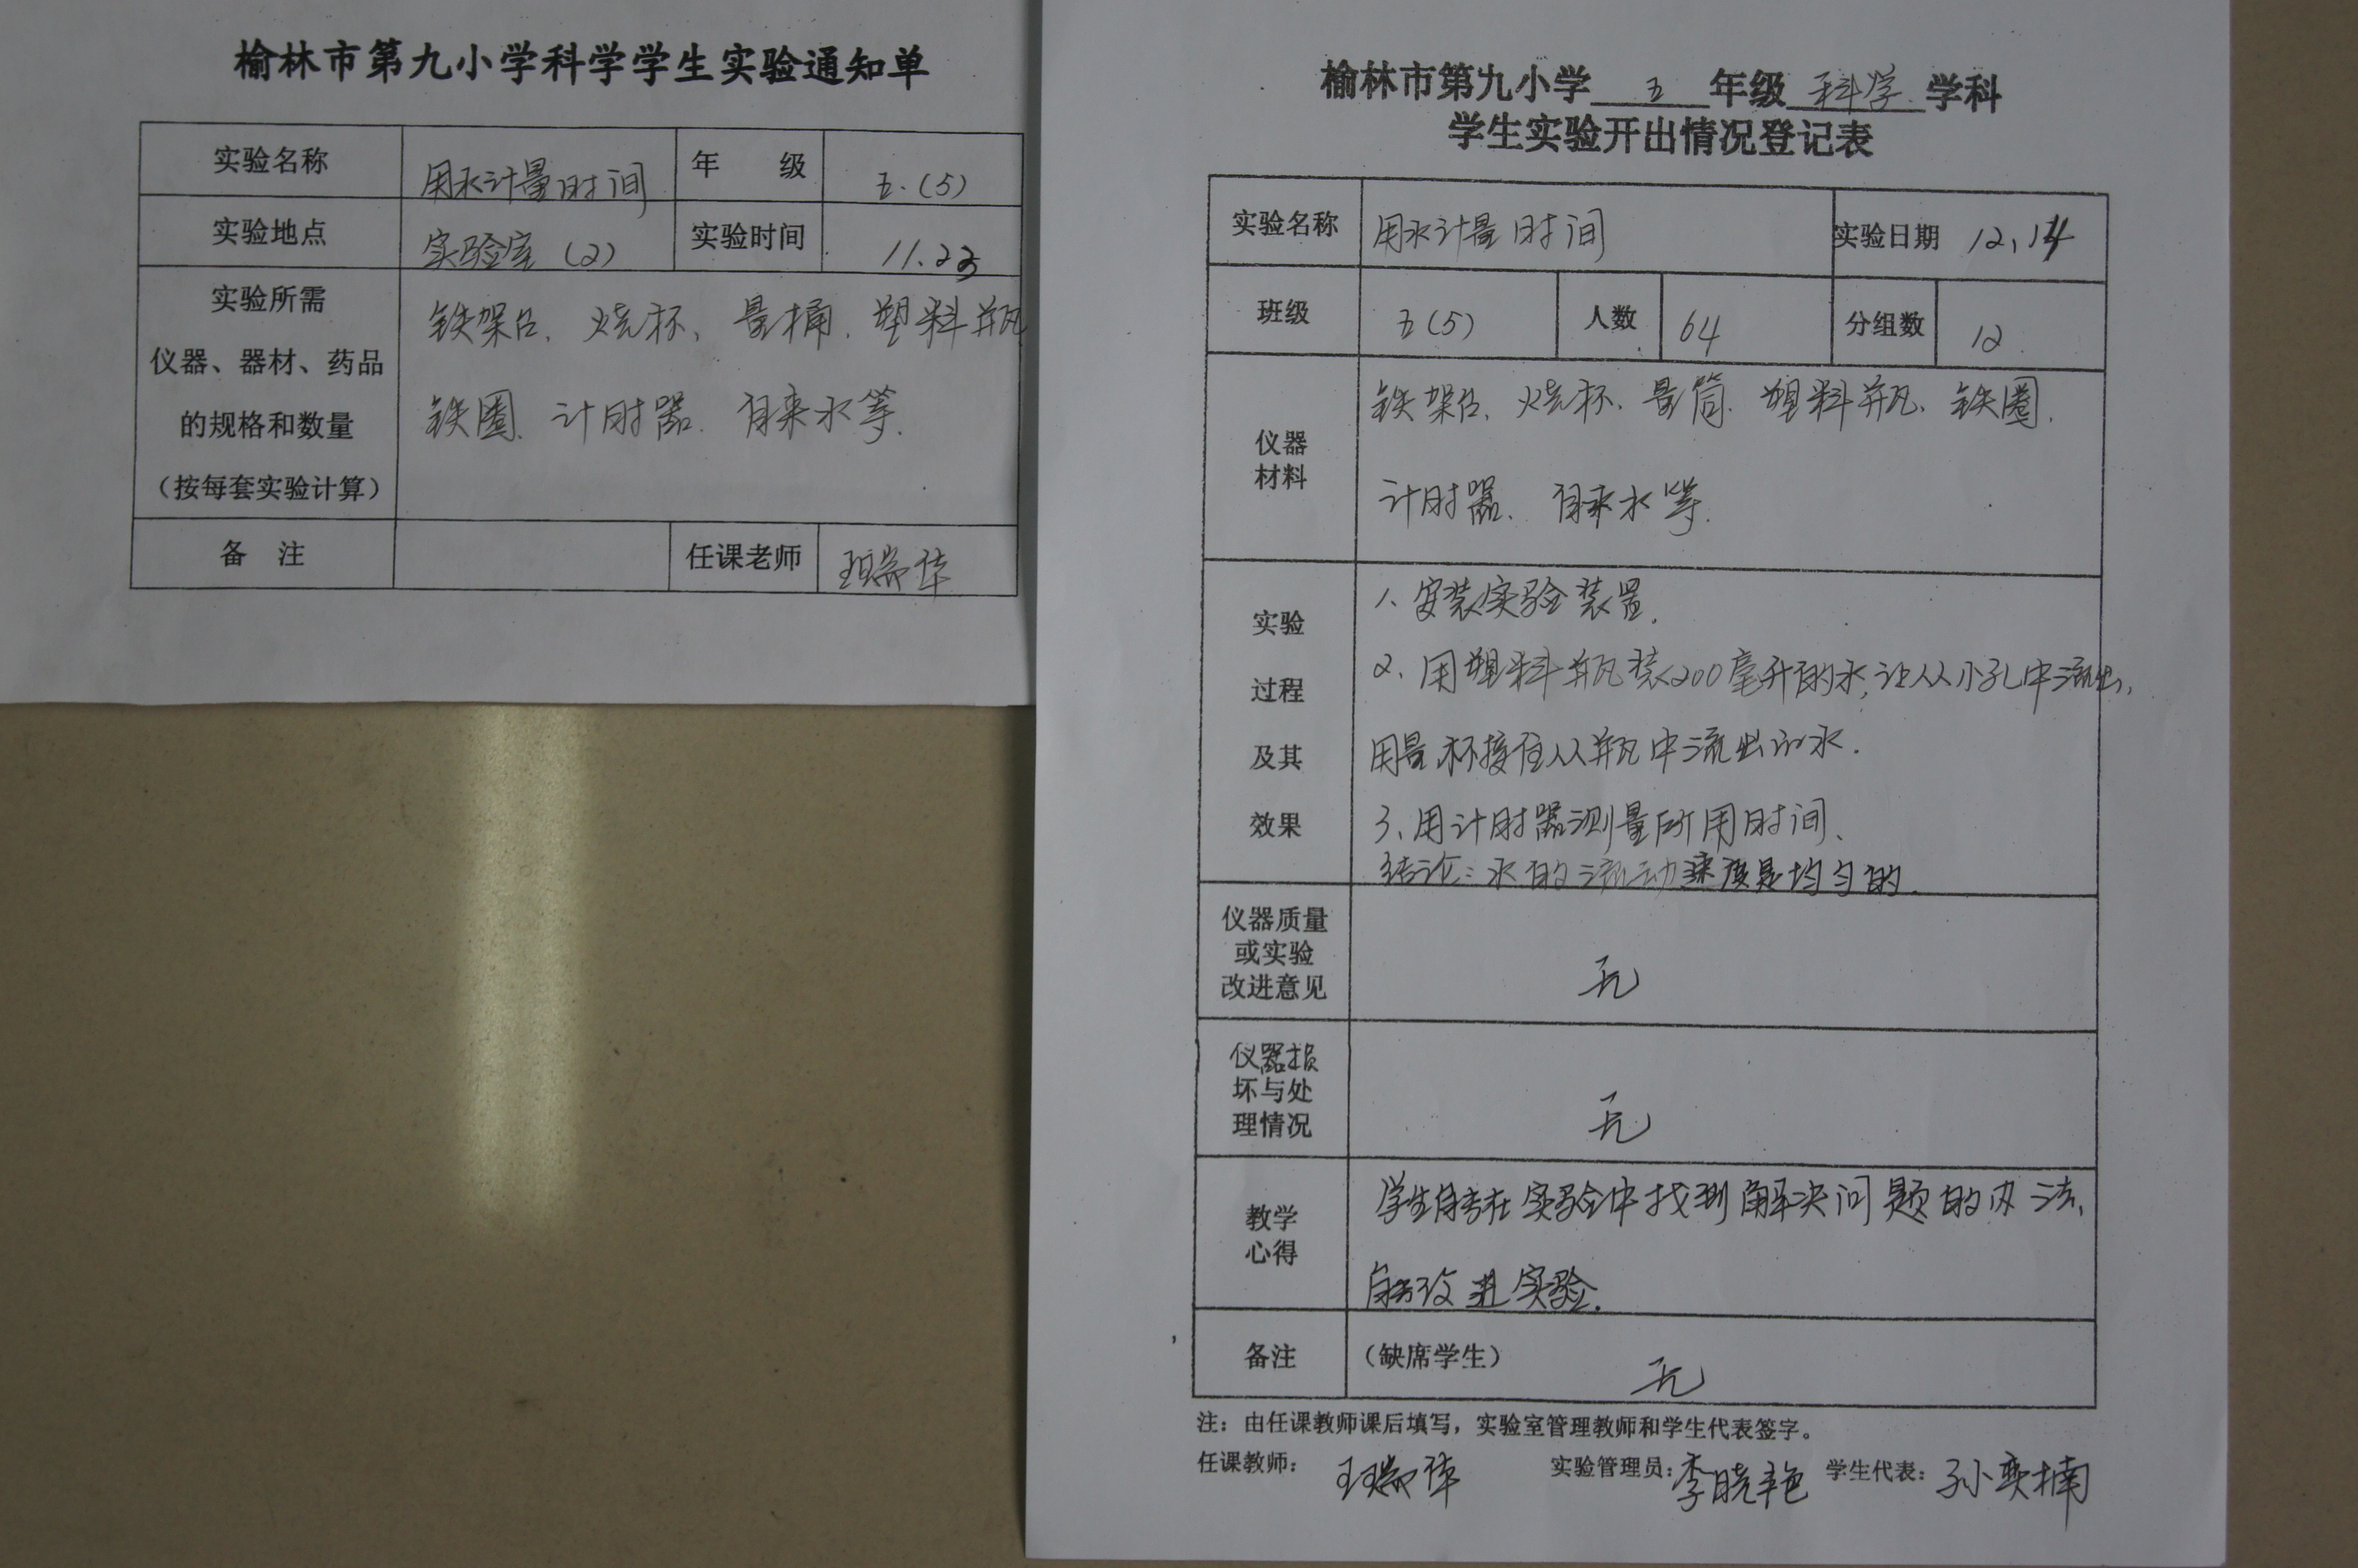 榆林市第九小学科学学生实验通知单
实验名称 用水计量时间 年 级 五.(5)
实验地点 实验室(2) 实验时间 11.23
实验所需
仪器、器材、药品
的规格和数量
(按每套实验计算)
铁架台、烧杯、量桶、塑料瓶
铁圈、计时器、自来水等.
备 注 任课老师 王瑞萍
榆林市第九小学 五 年级 科学 学科
学生实验开出情况登记表
实验名称 用水计量时间 实验日期 12.14
班级 五(5) 人数 64 分组数 12
仪器
材料
铁架台、烧杯、量筒、塑料瓶、铁圈.
计时器、自来水等.
实验
过程
及其
效果
1、安装实验装置.
2、用塑料瓶装200毫升的水,让从小孔中流出,
用量杯接住从瓶中流出的水.
3、用计时器测量所用时间、
结论:水的流动速度是均匀的.
仪器质量
或实验
改进意见
无
仪器损
坏与处
理情况
无
教学
心得
学生能在实验中找到解决问题的办法,
能改进实验.
备注 (缺席学生) 无
注:由任课教师课后填写,实验室管理教师和学生代表签字。
任课教师: 王瑞萍 实验管理员: 李晓艳 学生代表: 孙奕楠